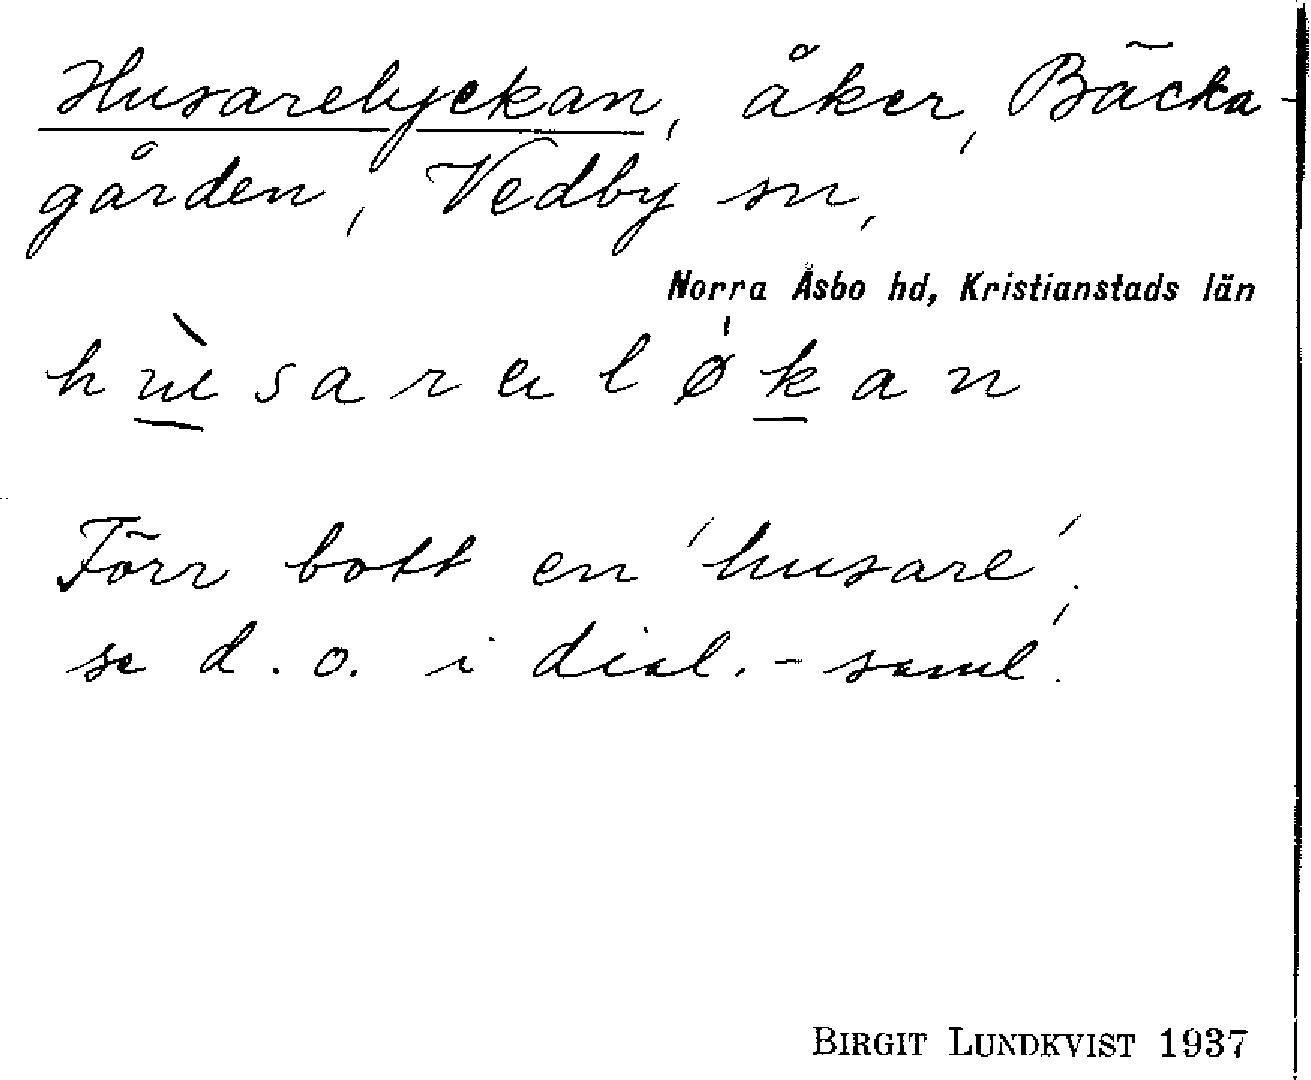 Husarelyckan, åker, Bäcka-
gården, Vedby sn,
Norra Åsbo hd, Kristianstads län
hùsarɐløkan
Förr bott en 'husare'.
se d. o. i dial.-saml.'
BIRGIT LUNDKVIST 1937